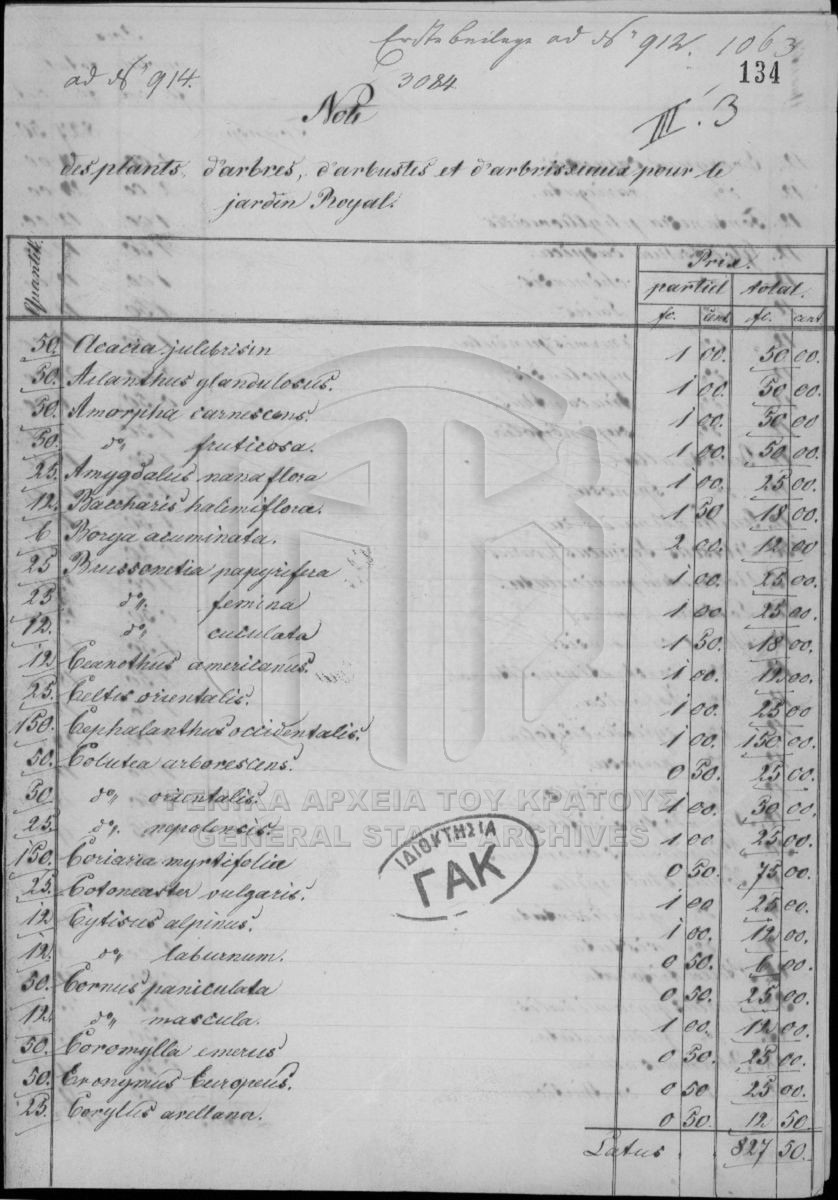 Erste beilage ad No 912. 1063
ad No 914.
3084
134
Note
III. 3
des plants, d'arbres, d'arbustes et d'arbrisseaux pour le
jardin Royal.
Quantit. Prix.
partiel total.
fc. cent fc. cent
50. Acacia julibrisin 1 00. 50 00.
50. Ailanthus glandulosus. 1 00. 50 00.
50. Amorpha carnescens. 1 00. 50 00
50. do„ fruticosa. 1 00. 50 00.
25. Amygdalus nana flora 1 00. 25 00.
12. Baccharis halimiflora. 1 50 18 00.
6 Borya acuminata. 2 00. 12 00
25 Brussonetia papyrifera 1 00. 25 00.
25 do„ femina 1 00 25 00.
12. do„ cuculata 1 50. 18 00.
12 Ceanothus americanus. 1 00. 12 00.
25. Celtis orientalis. 1 00. 25 00
150. Cephalanthus occidentalis. 1 00. 150 00.
50. Colutea arborescens. 0 50. 25 00.
50 do„ orientalis. 1 00. 50 00.
25. do„ nepolensis. 1 00 25 00.
150. Coriaria myrtifolia 0 50. 75 00.
25. Cotoneaster vulgaris. 1 00 25 00.
12 Cytisus alpinus. 1 00. 12 00.
12. do„ laburnum. 0 50. 6 00.
50. Cornus paniculata 0 50. 25 00.
12. do„ mascula. 1 00. 12 00.
50. Coromylla emerus 0 50. 25 00.
50. Evonymus Europeus. 0 50 25 00.
25. Corylus avellana. 0 50. 12 50.
Latus 827 50.
ΓΕΝΙΚΑ ΑΡΧΕΙΑ ΤΟΥ ΚΡΑΤΟΥΣ
GENERAL STATE ARCHIVES
ΙΔΙΟΚΤΗΣΙΑ
ΓΑΚ